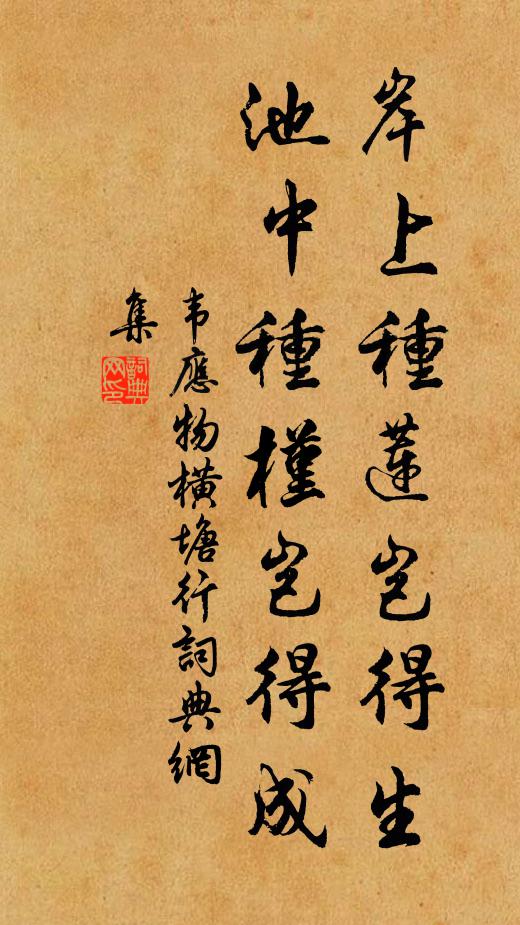 岸上種蓮豈得生
池中種槿豈得成
韦應物橫塘行詞典網
集
詞典网印